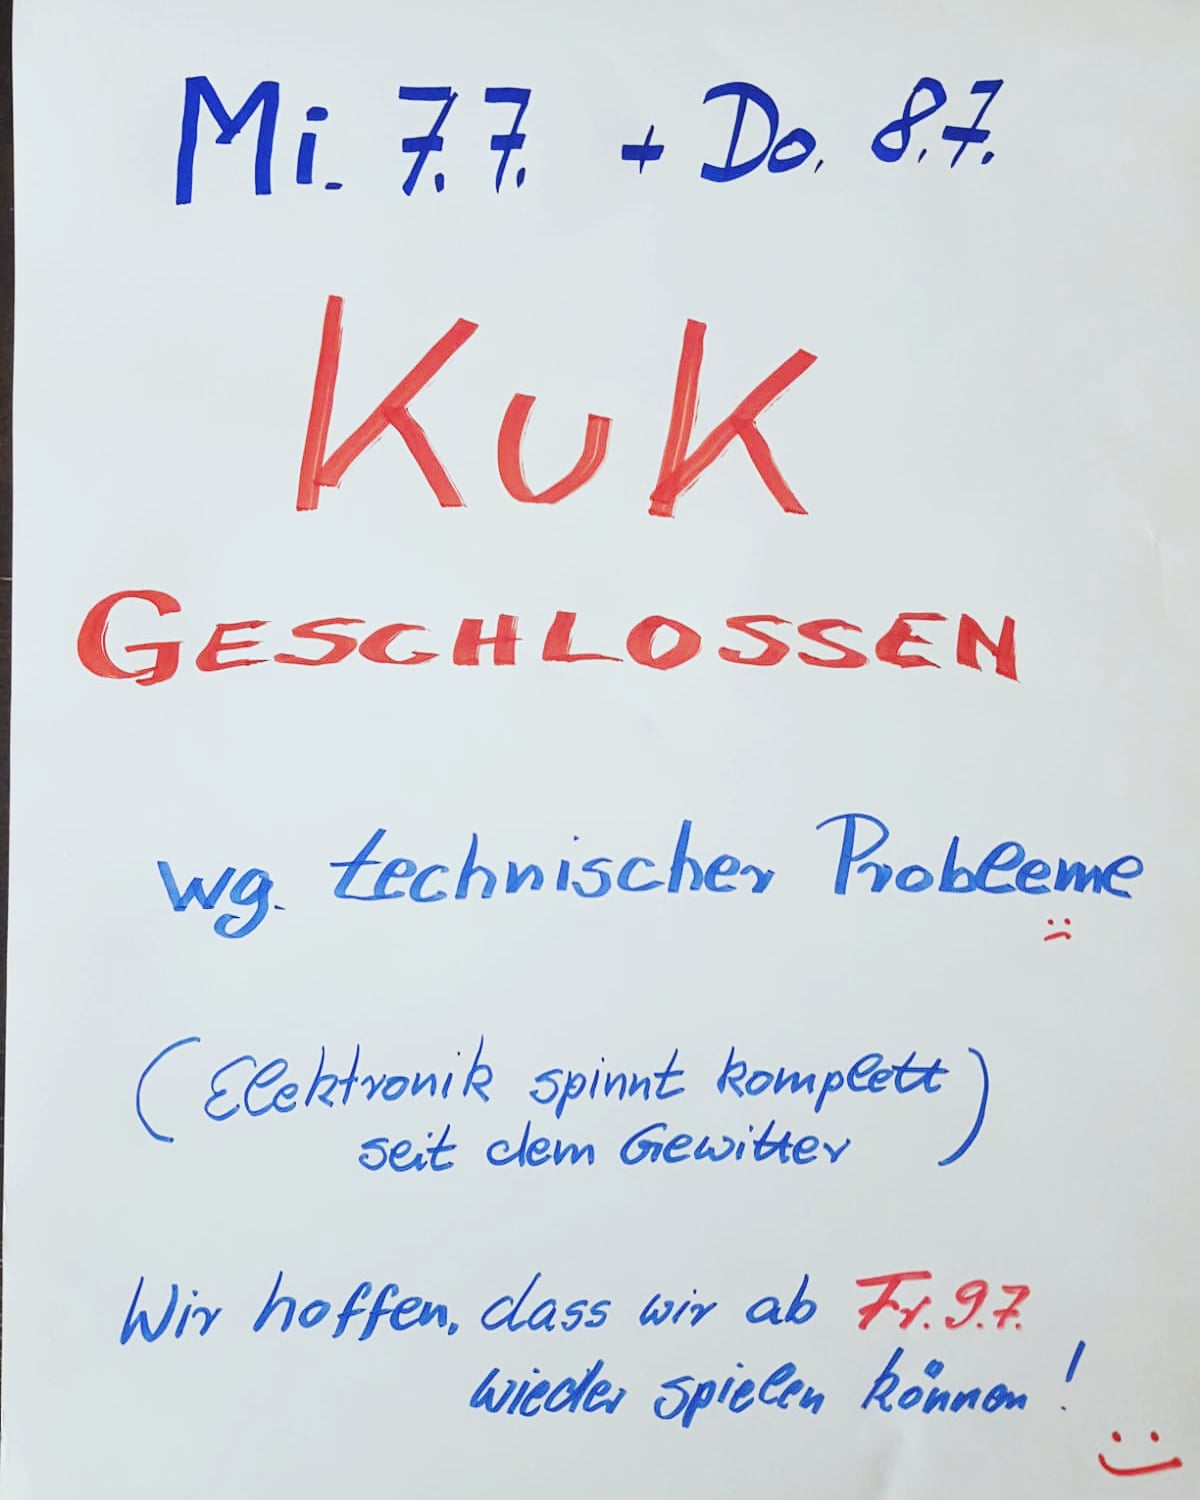 Mi. 7.7. + Do. 8.7.
KuK
GESCHLOSSEN
wg. technischer Probleme
(Elektronik spinnt komplett
seit dem Gewitter)
Wir hoffen, dass wir ab Fr. 9.7.
wieder spielen können!